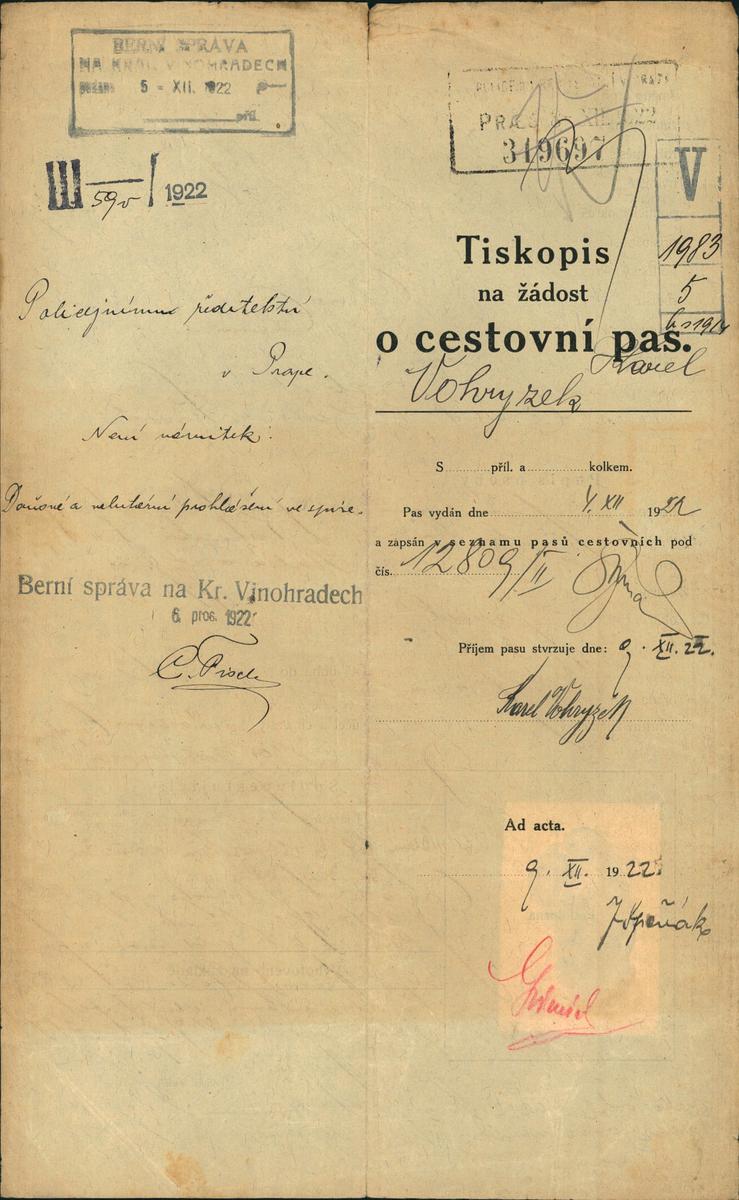 BERNÍ SPRÁVA
NA KRÁL. VINOHRADECH
5 - XII. 1922
příl.
III 59v / 1922
Policejnímu ředitelství
v Praze.
Není námitek.
Berní správa na Kr. Vinohradech
6. pros. 1922
XII. 1922
319697
V
1983
5
Tiskopis
na žádost
o cestovní pas.
Vohryzek Karel
S příl. a kolkem.
Pas vydán dne 4. XII 1922
a zapsán v seznamu pasů cestovních pod
čís. 12809/II
Příjem pasu stvrzuje dne: 9. XII. 22.
Karel Vohryzek
Ad acta.
9. XII. 1922.